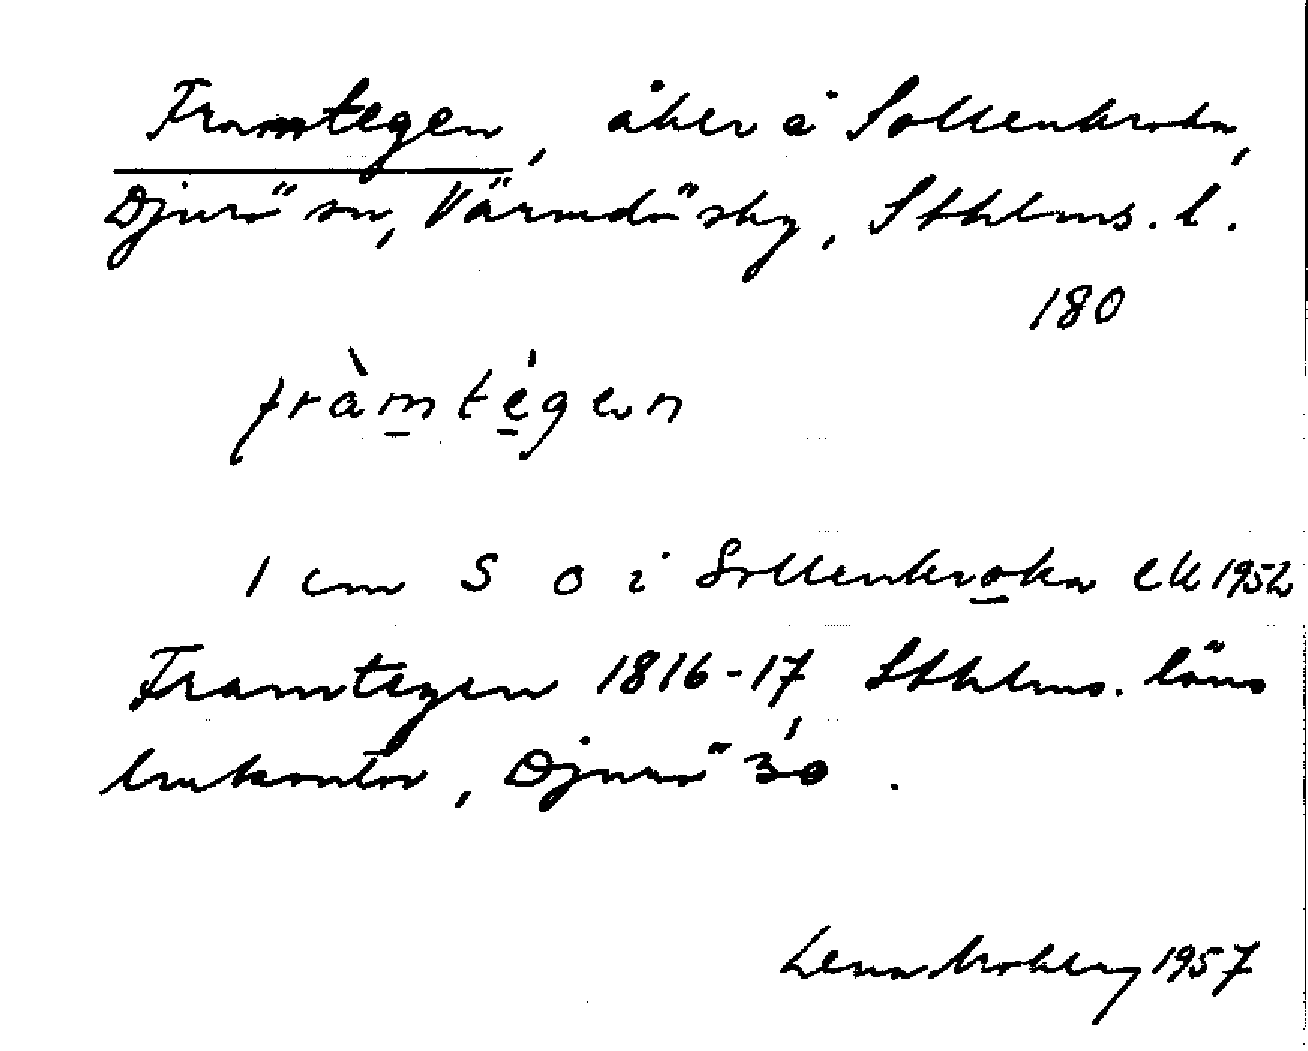 Framtegen, åker i Sollenkroka,
Djurö sn, Värmdö sky, Sthlms. l.
180
fràmtégen
1 cm S o i Sollenkroka ek 1952
Framtegen 1816-17 Sthlms. läns
lmkontor, Djurö 30'.
Lena Moberg 1957